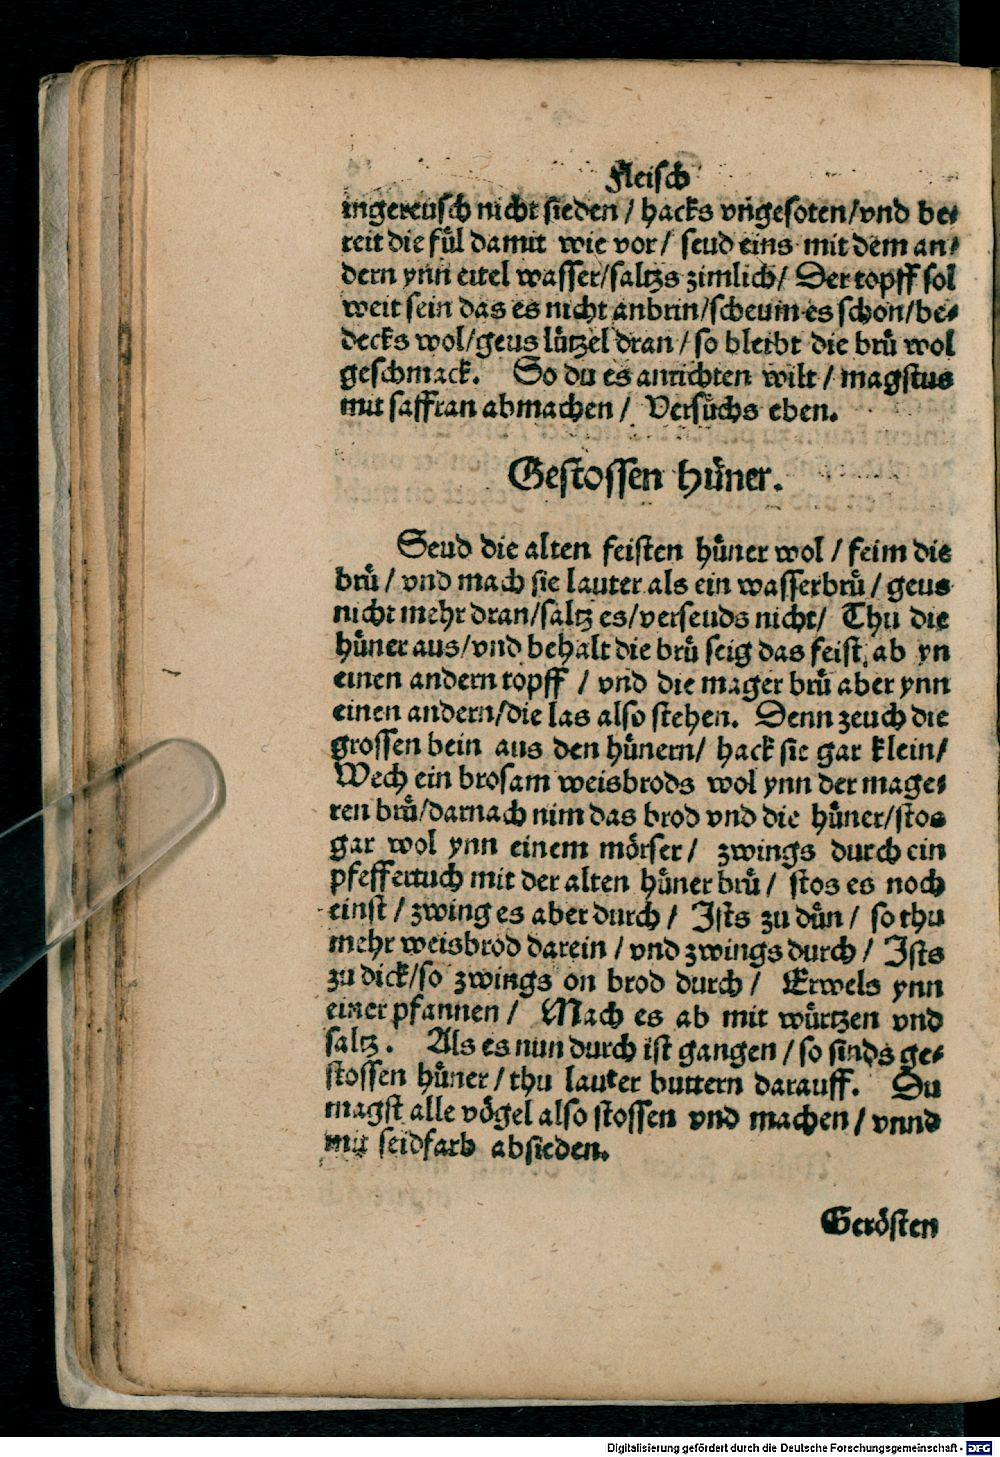 Fleisch
ingereusch nicht sieden / hacks vngesoten/vnd be⸗
reit die fuͤl damit wie vor / seud eins mit dem an⸗
dern ynn eitel wasser/saltzs zimlich/ Der topff sol
weit sein das es nicht anbrin/scheum es schon/be⸗
decks wol/geus luͤtzel dran / so bleibt die bruͤ wol
geschmack. So du es anrichten wilt / magstus
mit saffran abmachen / Versuͤchs eben.
Gestossen huͤner.
Seud die alten feisten huͤner wol / feim die
bruͤ / vnd mach sie lauter als ein wasserbruͤ / geus
nicht mehr dran/saltz es/verseuds nicht/ Thu die
huͤner aus/vnd behalt die bruͤ seig das feist ab yn
einen andern topff / vnd die mager bruͤ aber ynn
einen andern/die las also stehen. Denn zeuch die
grossen bein aus den huͤnern/ hack sie gar klein/
Wech ein brosam weisbrods wol ynn der mage⸗
ren bruͤ/darnach nim das brod vnd die huͤner/stos
gar wol ynn einem moͤrser / zwings durch ein
pfeffertuch mit der alten huͤner bruͤ / stos es noch
einst / zwing es aber durch / Ists zu duͤn / so thu
mehr weisbrod darein / vnd zwings durch / Ists
zu dick/so zwings on brod durch / Erwels ynn
einer pfannen / Mach es ab mit wuͤrtzen vnd
saltz. Als es nun durch ist gangen / so sinds ge⸗
stossen huͤner / thu lauter buttern darauff. Du
magst alle voͤgel also stossen vnd machen / vnnd
mit seidfarb absieden.
Geroͤsten
Digitalisierung gefördert durch die Deutsche Forschungsgemeinschaft - DFG